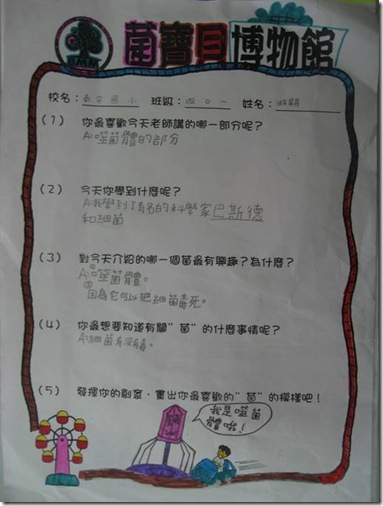 BMM
菌寶貝博物館
校名: 班級: 四 姓名:
(1) 你最喜歡今天老師講的哪一部分呢?
A:噬菌體的部分
(2) 今天你學到什麼呢?
A:我學到了有名的科學家巴斯德
和細菌
(3) 對今天介紹的哪一個菌最有興趣?為什麼?
A:①噬菌體。
②因為它可以把細菌毒死。
(4) 你最想要知道有關"菌"的什麼事情呢?
A:細菌有沒有毒。
(5) 發揮你的創意,畫出你最喜歡的"菌"的模樣吧!
我是噬菌
體哦!